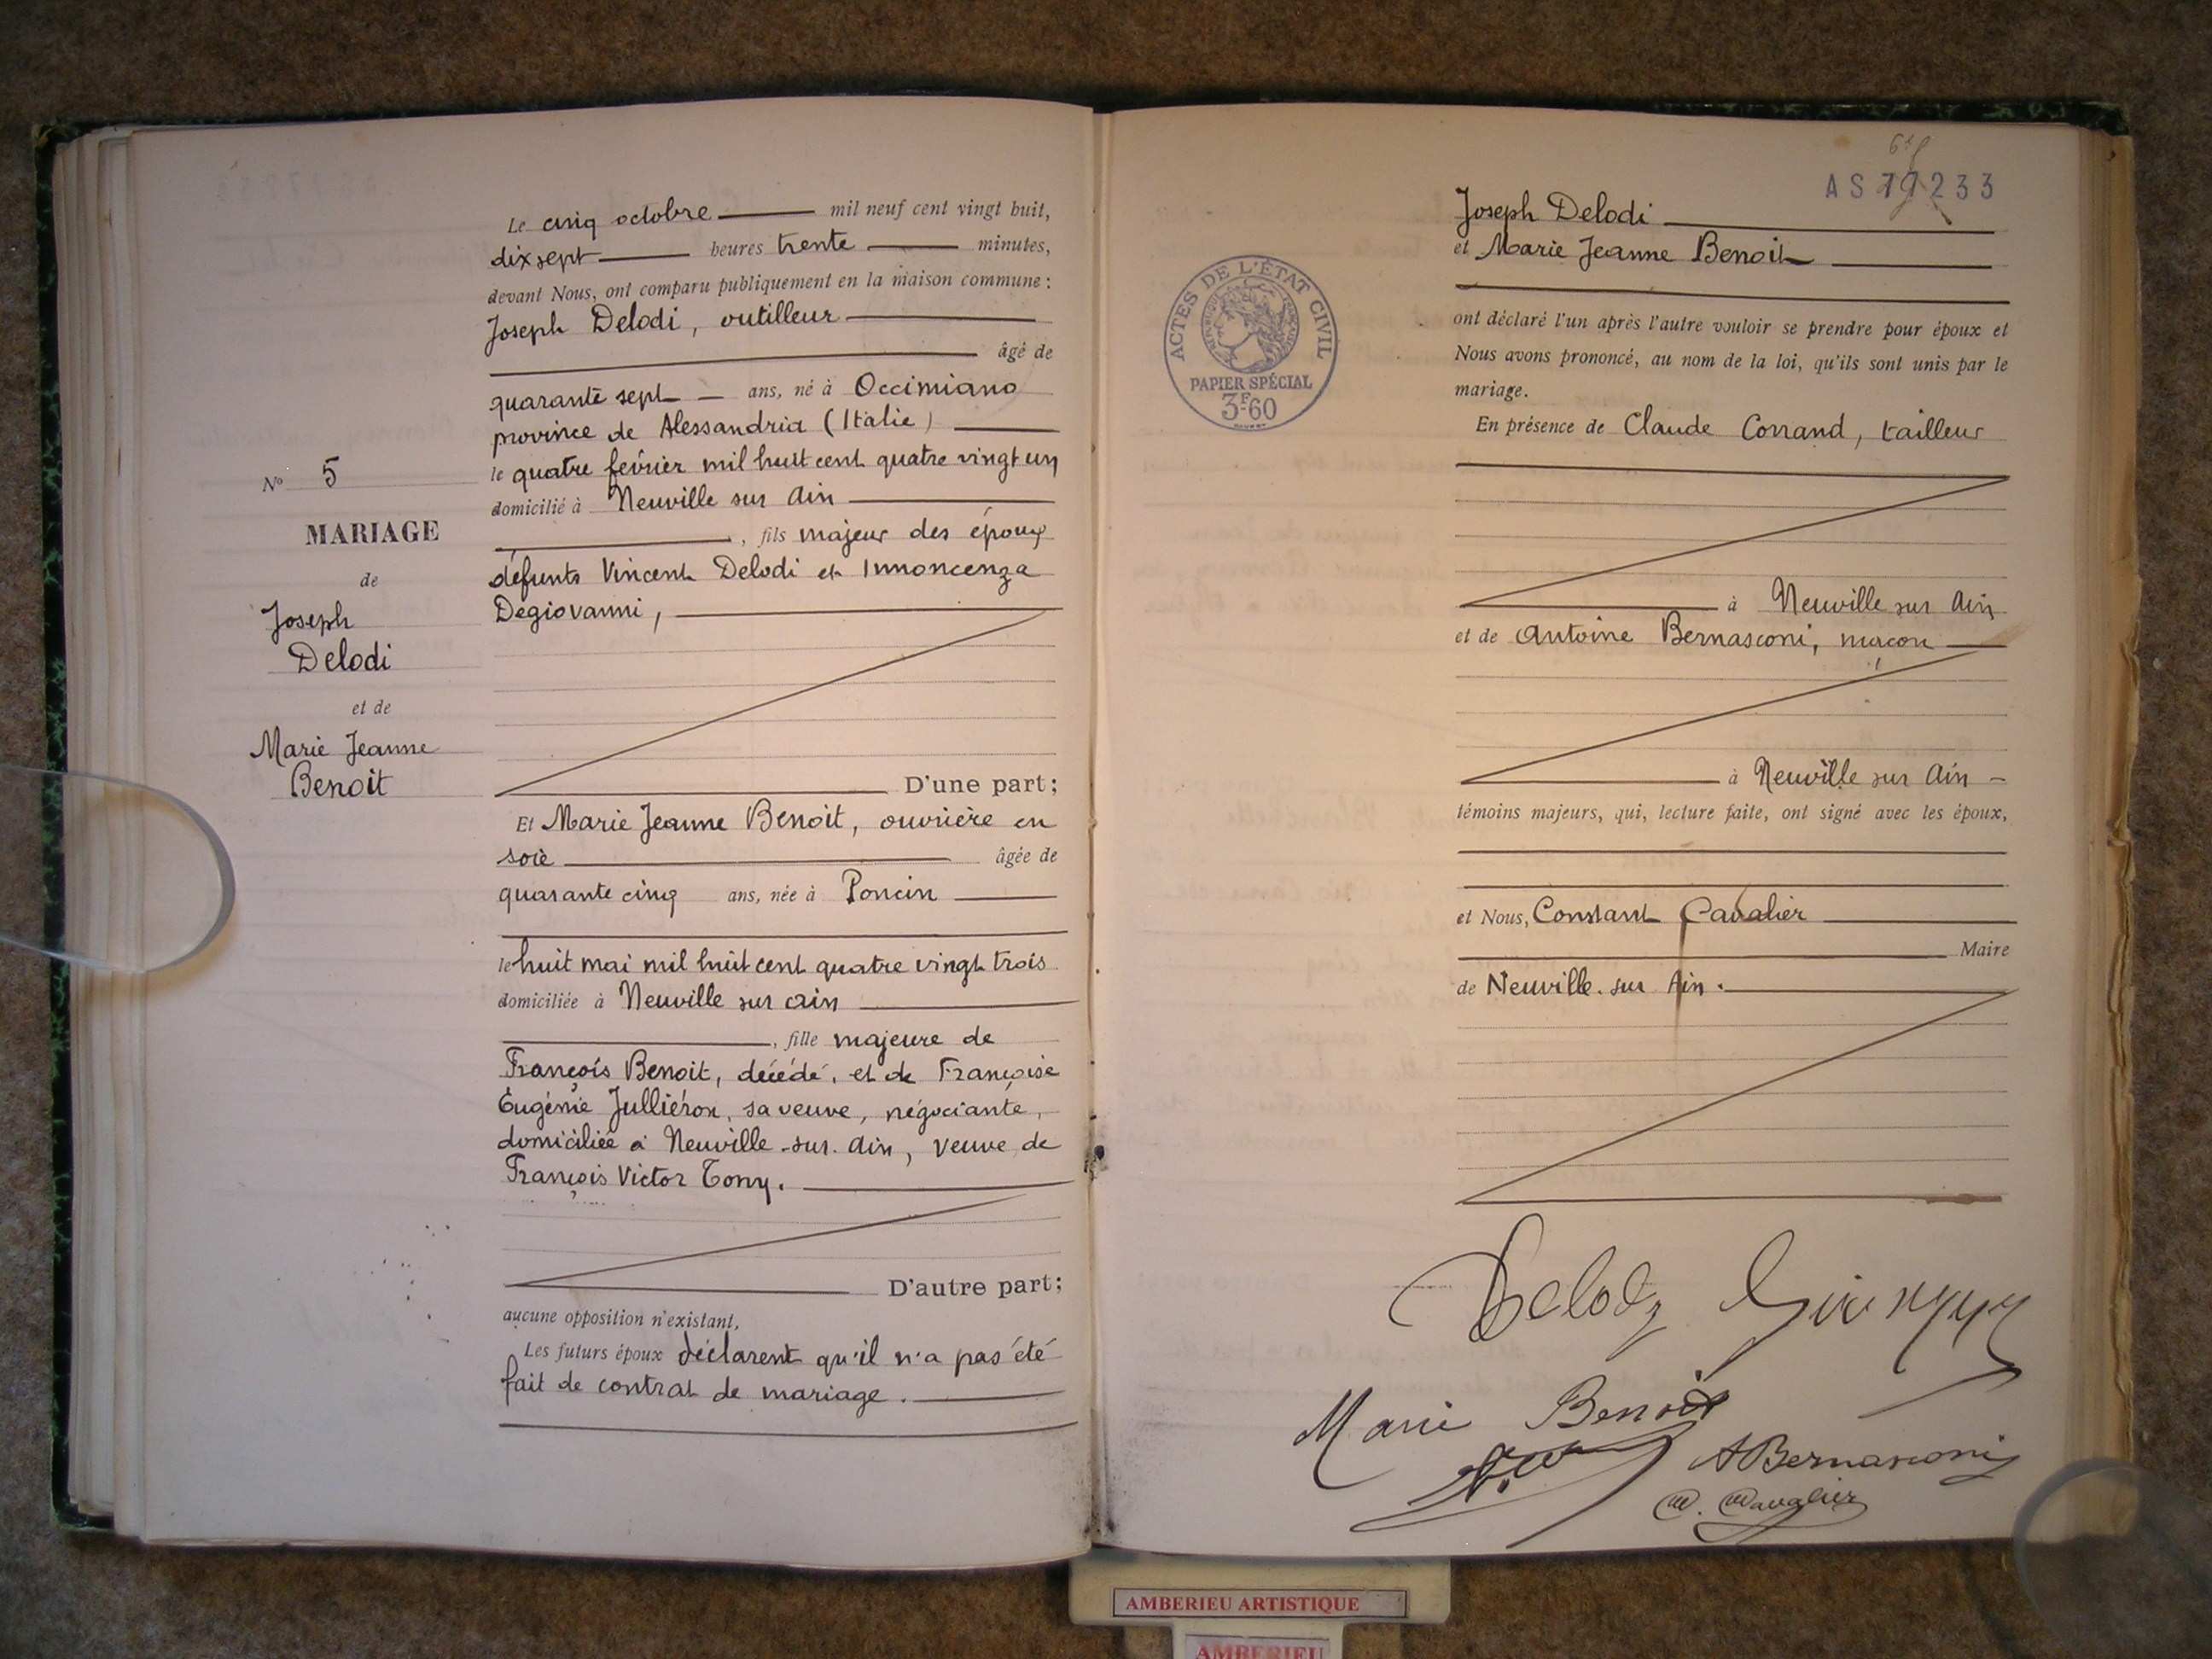 Le cinq octobre mil neuf cent vingt huit,
dix sept heures trente minutes,
devant Nous, ont comparu publiquement en la maison commune :
Joseph Delodi, outilleur
âgé de
quarante sept ans, né à Occimiano
province de Alessandria (Italie)
le quatre février mil huit cent quatre vingt un
domicilié à Neuville sur Ain
, fils majeur des époux
défunts Vincent Delodi et Innoncenza
Degiovanni,
D'une part;
Et Marie Jeanne Benoit, ouvrière en
soie âgée de
quarante cinq ans, née à Poncin
le huit mai mil huit cent quatre vingt trois
domiciliée à Neuville sur ain
, fille majeure de
François Benoit, décédé, et de Françoise
Eugénie Julliéron, sa veuve, négociante,
domiciliée à Neuville-sur-Ain, veuve de
François Victor Tony.
D'autre part;
aucune opposition n'existant,
Les futurs époux déclarent qu'il n'a pas été
fait de contrat de mariage.
N° 5
MARIAGE
de
Joseph
Delodi
et de
Marie Jeanne
Benoit
AS 77233
Joseph Delodi
et Marie Jeanne Benoit
ACTES DE L'ÉTAT CIVIL
PAPIER SPÉCIAL
3F60
ont déclaré l'un après l'autre vouloir se prendre pour époux et
Nous avons prononcé, au nom de la loi, qu'ils sont unis par le
mariage.
En présence de Claude Corrand, tailleur
à Neuville sur Ain
et de Antoine Bernasconi, maçon
à Neuville sur Ain
témoins majeurs, qui, lecture faite, ont signé avec les époux,
et Nous, Constant Cavalier
Maire
de Neuville. sur Ain.
Marie Benoit
A Bernasconi
C. Cavalier
AMBERIEU ARTISTIQUE
AMBERIEU